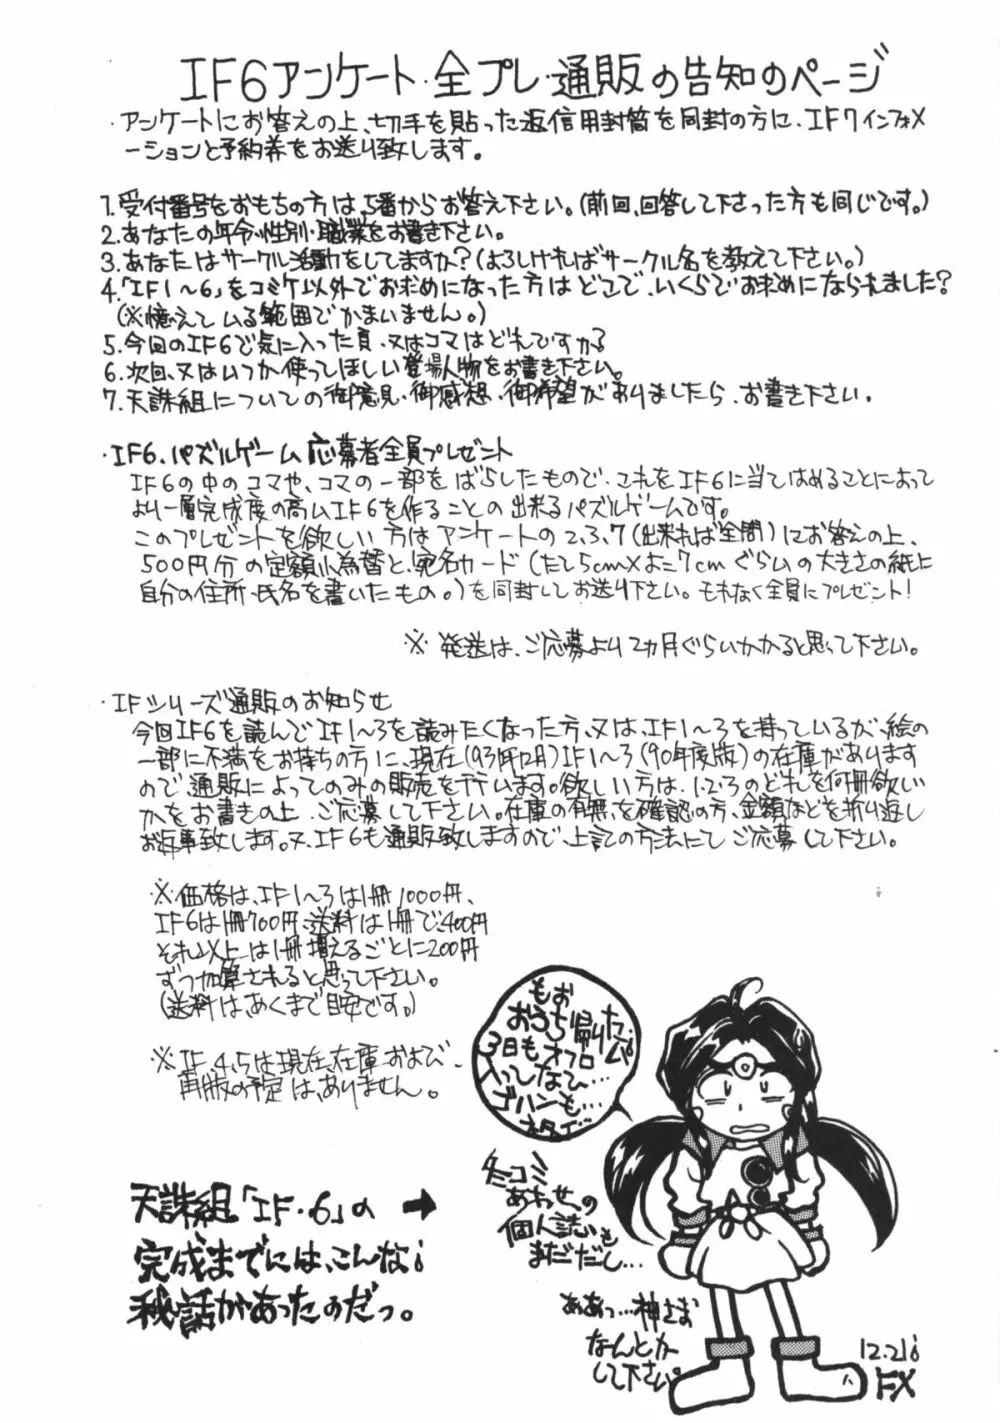 IF6アンケート・全プレ・通販の告知のページ
・アンケートにお答えの上、切手を貼った返信用封筒を同封の方に、IF7インフォメ
ーションと予約券をお送り致します。
1.受付番号をおもちの方は、5番からお答え下さい。(前回、回答して下さった方も同じです。)
2.あなたの年令・性別・職業をお書き下さい。
3.あなたはサークル活動をしてますか?(よろしければサークル名を教えて下さい。)
4.「IF1〜6」をコミケ以外でお求めになった方はどこで、いくらでお求めになられました?
(※憶えている範囲でかまいません。)
5.今回のIF6で気に入った頁、又はコマはどれですか?
6.次回、又はいつか使ってほしい登場人物をお書き下さい。
7.天誅組についての御意見・御感想・御希望がありましたら、お書き下さい。
・IF6.パズルゲーム応募者全員プレゼント
IF6の中のコマや、コマの一部をばらしたもので、これをIF6に当てはめることによって
より一層完成度の高いIF6を作ることの出来るパズルゲームです。
このプレゼントを欲しい方はアンケートの2,3,7(出来れば全問)にお答えの上、
500円分の定額小為替と、宛名カード(たて5cm×よこ7cmぐらいの大きさの紙に
自分の住所・氏名を書いたもの。)を同封してお送り下さい。もれなく全員にプレゼント!
※発送は、ご応募より2ヵ月ぐらいかかると思って下さい。
・IFシリーズ通販のお知らせ
今回IF6を読んでIF1〜3を読みたくなった方、又は、IF1〜3を持っているが、絵の
一部に不満をお持ちの方に、現在(93年12月)IF1〜3(90年度版)の在庫があります
ので通販によってのみの販売を行います。欲しい方は、1.2.3のどれを何冊欲しい
かをお書きの上、ご応募して下さい。在庫の有無を確認の方、金額などを折り返し
お返事致します。又、IF6も通販致しますので、上記の方法にてご応募して下さい。
※価格は、IF1〜3は1冊1000円、
IF6は1冊700円、送料は1冊で、400円
それ以上は1冊増えるごとに200円
ずつ加算されると思って下さい。
(送料は、あくまで目安です。)
※IF4,5は現在、在庫および、
再版の予定は、ありません。
もお
おうち帰りた〜い
3日もオフロ
入ってない…
ゴハンも…
冬コミ
あわせの
個人誌も
まだだし…
ああっ…神さま
なんとか
して下さい。
天誅組「IF・6」の →
完成までには、こんな
秘話があったのだっ。
12.21
FX